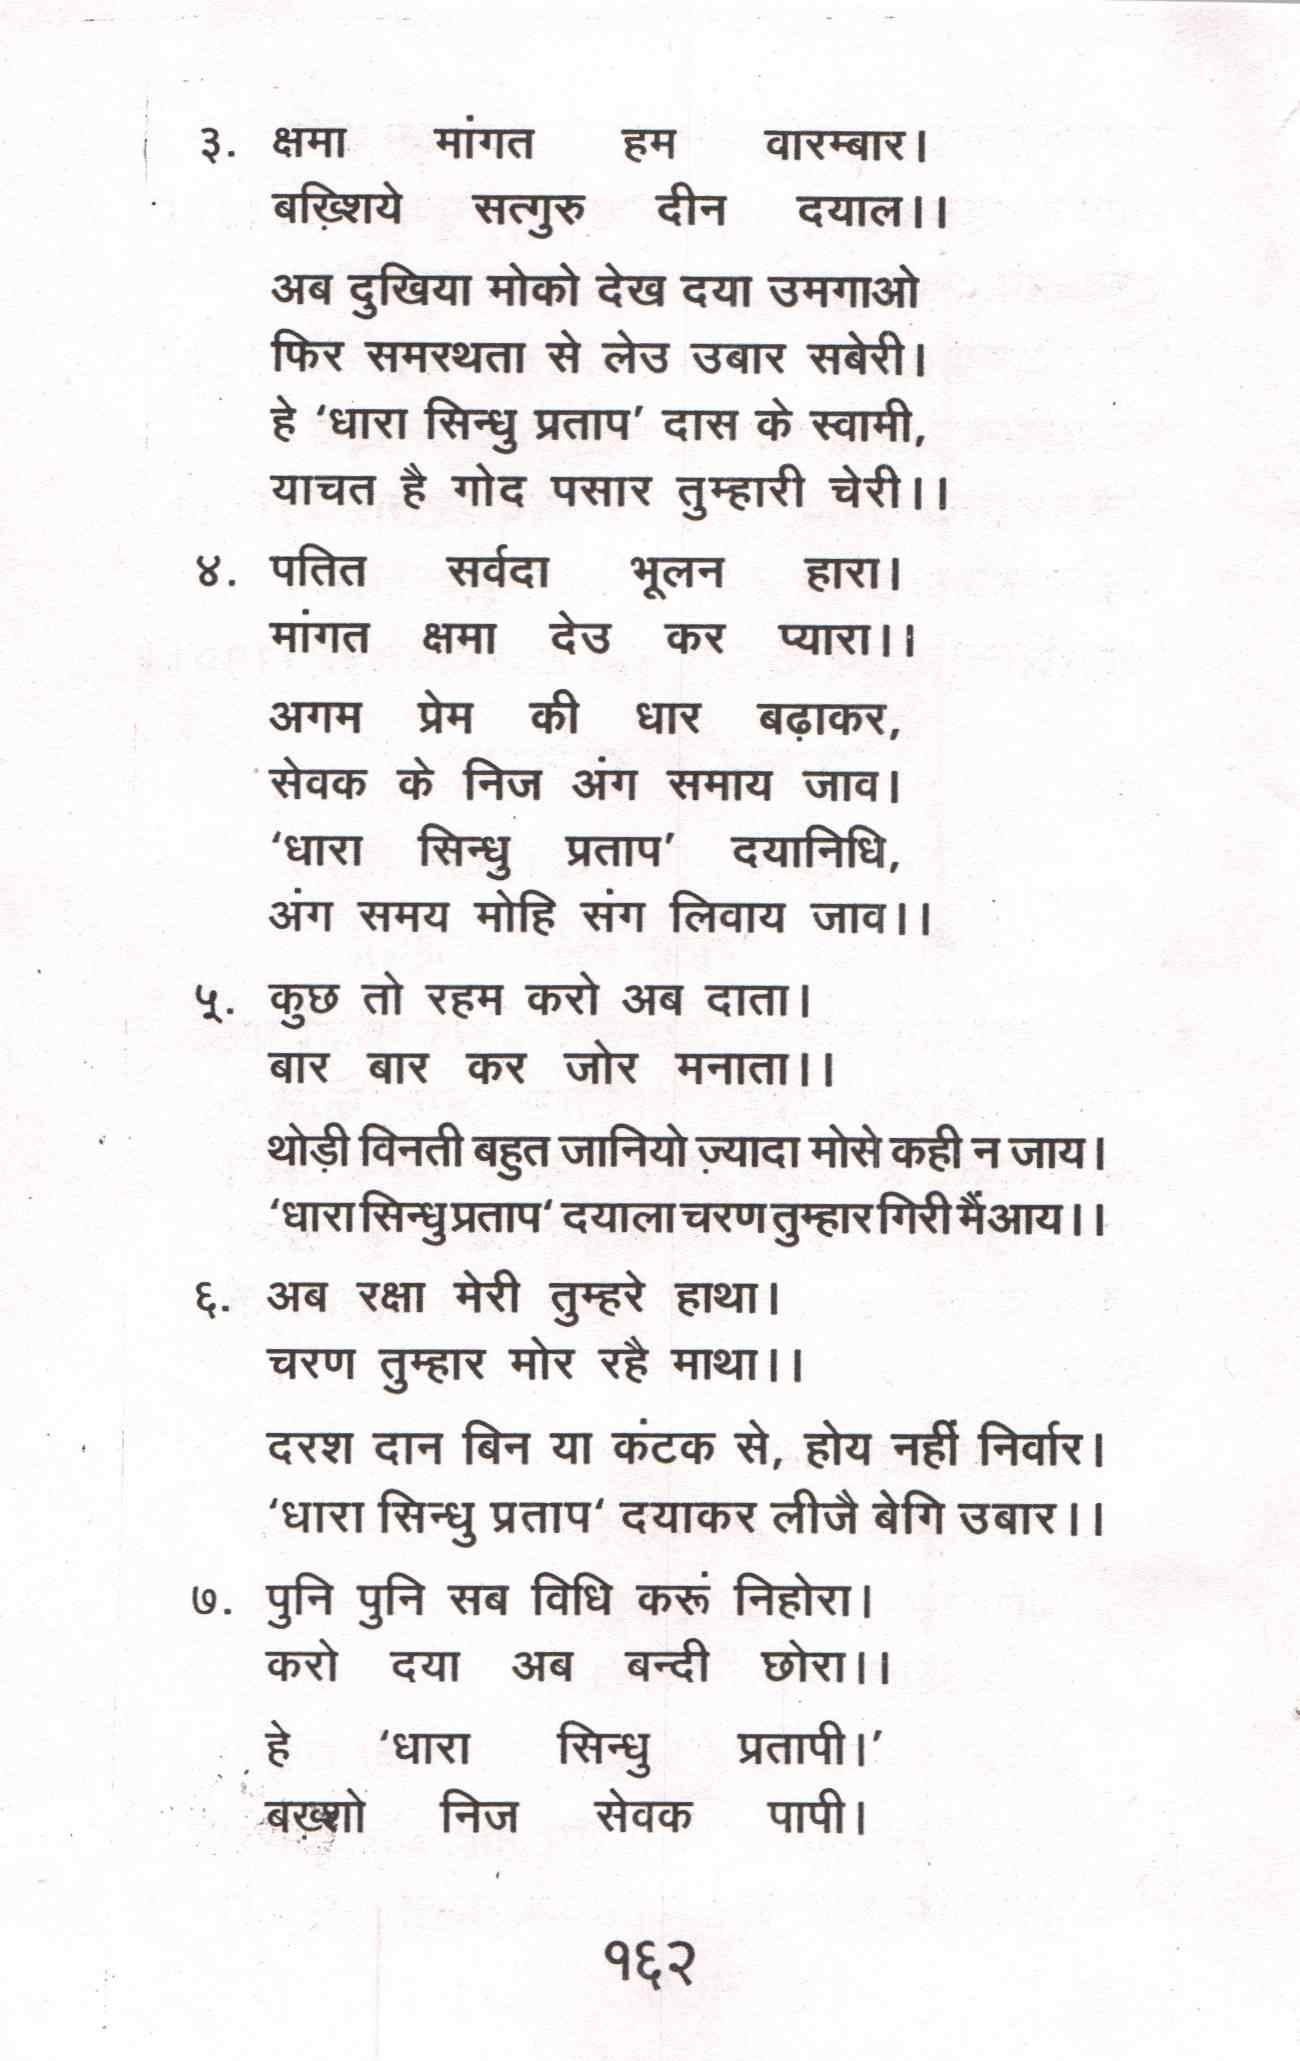 ३. क्षमा मांगत हम वारम्बार।
बख़्शिये सत्गुरु दीन दयाल।।
अब दुखिया मोको देख दया उमगाओ
फिर समरथता से लेउ उबार सबेरी।
हे ‘धारा सिन्धु प्रताप’ दास के स्वामी,
याचत है गोद पसार तुम्हारी चेरी।।
४. पतित सर्वदा भूलन हारा।
मांगत क्षमा देउ कर प्यारा।।
अगम प्रेम की धार बढ़ाकर,
सेवक के निज अंग समाय जाव।
‘धारा सिन्धु प्रताप’ दयानिधि,
अंग समय मोहि संग लिवाय जाव।।
५. कुछ तो रहम करो अब दाता।
बार बार कर जोर मनाता।।
थोड़ी विनती बहुत जानियो ज़्यादा मोसे कही न जाय।
‘धारा सिन्धु प्रताप‘ दयाला चरण तुम्हार गिरी मैं आय।।
६. अब रक्षा मेरी तुम्हरे हाथा।
चरण तुम्हार मोर रहै माथा।।
दरश दान बिन या कंटक से, होय नहीं निर्वार।
‘धारा सिन्धु प्रताप‘ दयाकर लीजै बेगि उबार।।
७. पुनि पुनि सब विधि करूं निहोरा।
करो दया अब बन्दी छोरा।।
हे ‘धारा सिन्धु प्रतापी।’
बख़्शो निज सेवक पापी।
१६२